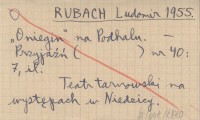 RUBACH Ludomir 1955.
"Oniegin" na Podhalu. —
Przyjaźń ( ) nr 40:
7, il.
Teatr tarnowski na
występach w Niedzicy.